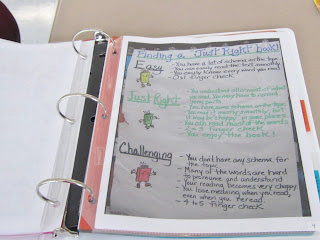 Finding a "Just Right book!
Easy
- You have a lot of schema on the topic
- You can easily read the text smoothly
- You easily know every word you read
- 0-1 finger check
Just Right
- You understand most of what
you read. You may have to reread
some parts
- You have some schema on the topic
- You read it smoothly, but
it may be "choppy" in some places
- You can read most of the words
- 2 or 3 finger check
- You enjoy the book!
Challenging
- You don't have any schema for
the topic
- Many of the words are hard
to pronounce and understand
- Your reading becomes very choppy
- You lose meaning when you read,
even when you reread.
- 4 to 5 finger check